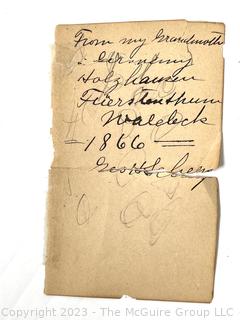 From my Grandmoth
Germany
Holzhausen
Fuerstenthum
Waldeck
— 1866 —
© Copyright 2023 - The McGuire Group LLC